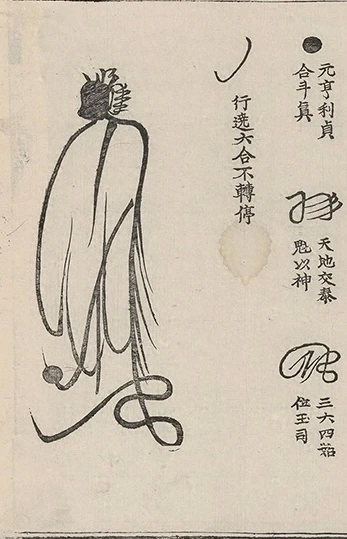 元亨利貞
合斗眞
天地交泰
以神
三六四
位玉司
行遶六合不轉停